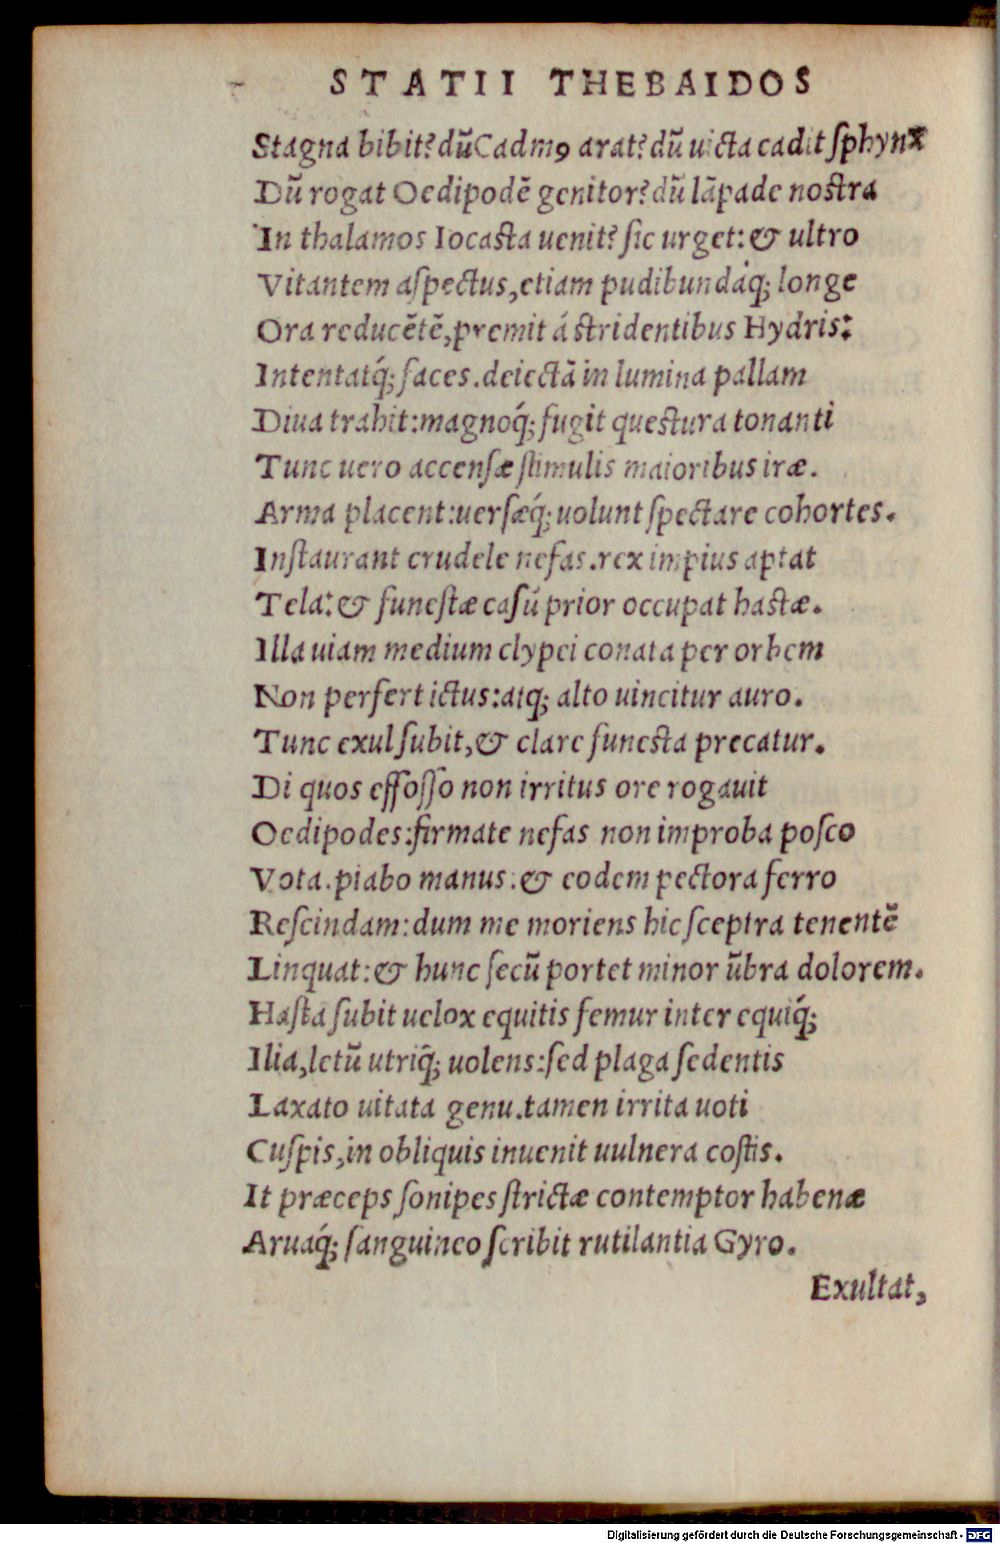 STATII THEBAIDOS
Stagna bibit? dũ Cadmꝰ arat? dũ uicta cadit sphynx
Dũ rogat Oedipodẽ genitor? dũ lãpade nostra
In thalamos Iocasta uenit? sic urget: & ultro
Vitantem aspectus, etiam pudibundáq; longe
Ora reducẽtẽ, premit á stridentibus Hydris:
Intentatq́; faces. deiectã in lumina pallam
Diua trahit: magnoq́; fugit questura tonanti
Tunc uero accensæ stimulis maioribus iræ.
Arma placent: uersæq́; uolunt spectare cohortes.
Instaurant crudele nefas. rex impius aptat
Tela: & funestæ casũ prior occupat hastæ.
Illa uiam medium clypei conata per orbem
Non perfert ictus: atq; alto uincitur auro.
Tunc exul subit, & clare funesta precatur.
Di quos effosso non irritus ore rogauit
Oedipodes: firmate nefas non improba posco
Vota. piabo manus. & eodem pectora ferro
Rescindam: dum me moriens hic sceptra tenentẽ
Linquat: & hunc secũ portet minor ũbra dolorem.
Hasta subit uelox equitis femur inter equiq́;
Ilia, letũ utriq̃; uolens: sed plaga sedentis
Laxato uitata genu. tamen irrita uoti
Cuspis, in obliquis inuenit uulnera costis.
It præceps sonipes strictæ contemptor habenæ
Aruaq́; sanguineo scribit rutilantia Gyro.
Exultat,
Digitalisierung gefördert durch die Deutsche Forschungsgemeinschaft - DFG